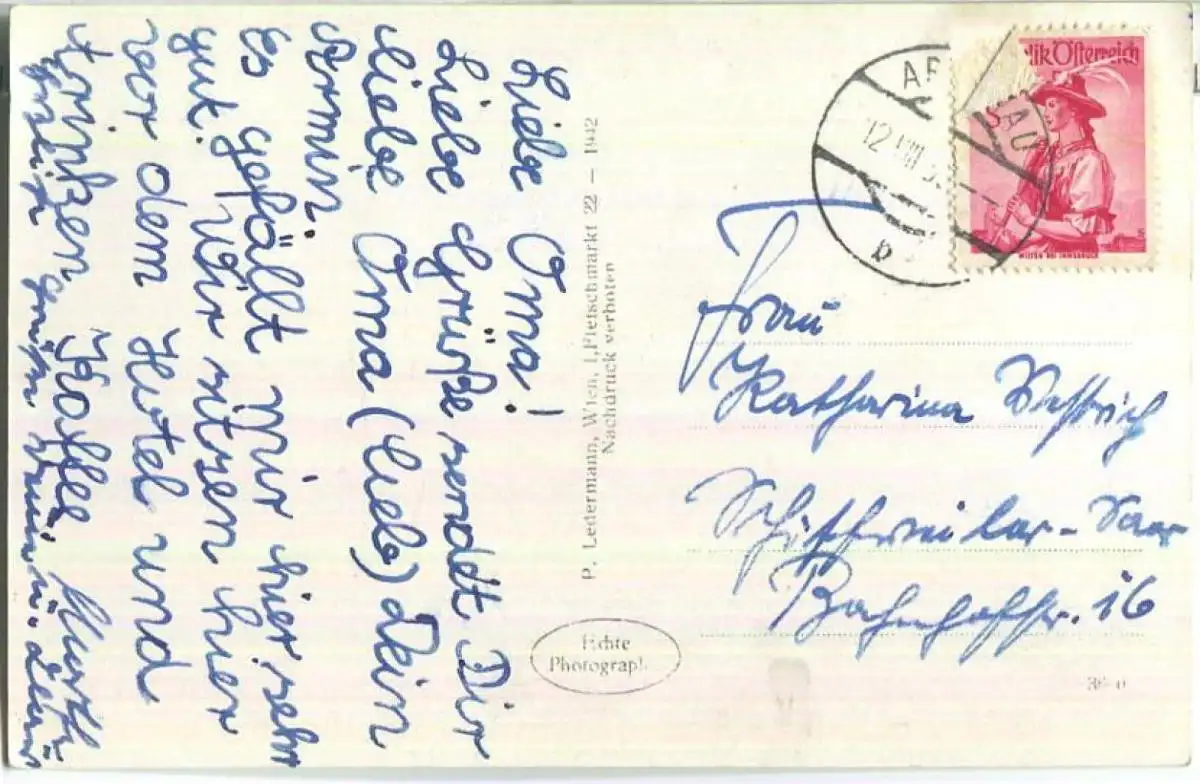 Liebe Oma!
Liebe Grüße sendet Dir
liebe Oma (liebe) Dein
Armin.
Es gefällt mir hier sehr
gut. Wir sitzen hier
vor dem Hotel und
trinken Kaffee.
P. Ledermann, Wien, I, Fleischmarkt 22 — 1942
Nachdruck verboten
Echte
Photograph
lik Österreich
WILTEN BEI INNSBRUCK
12 VIII
b
Frau
Katharina
Schiffweiler-Saar
Bahnhofstr. 16